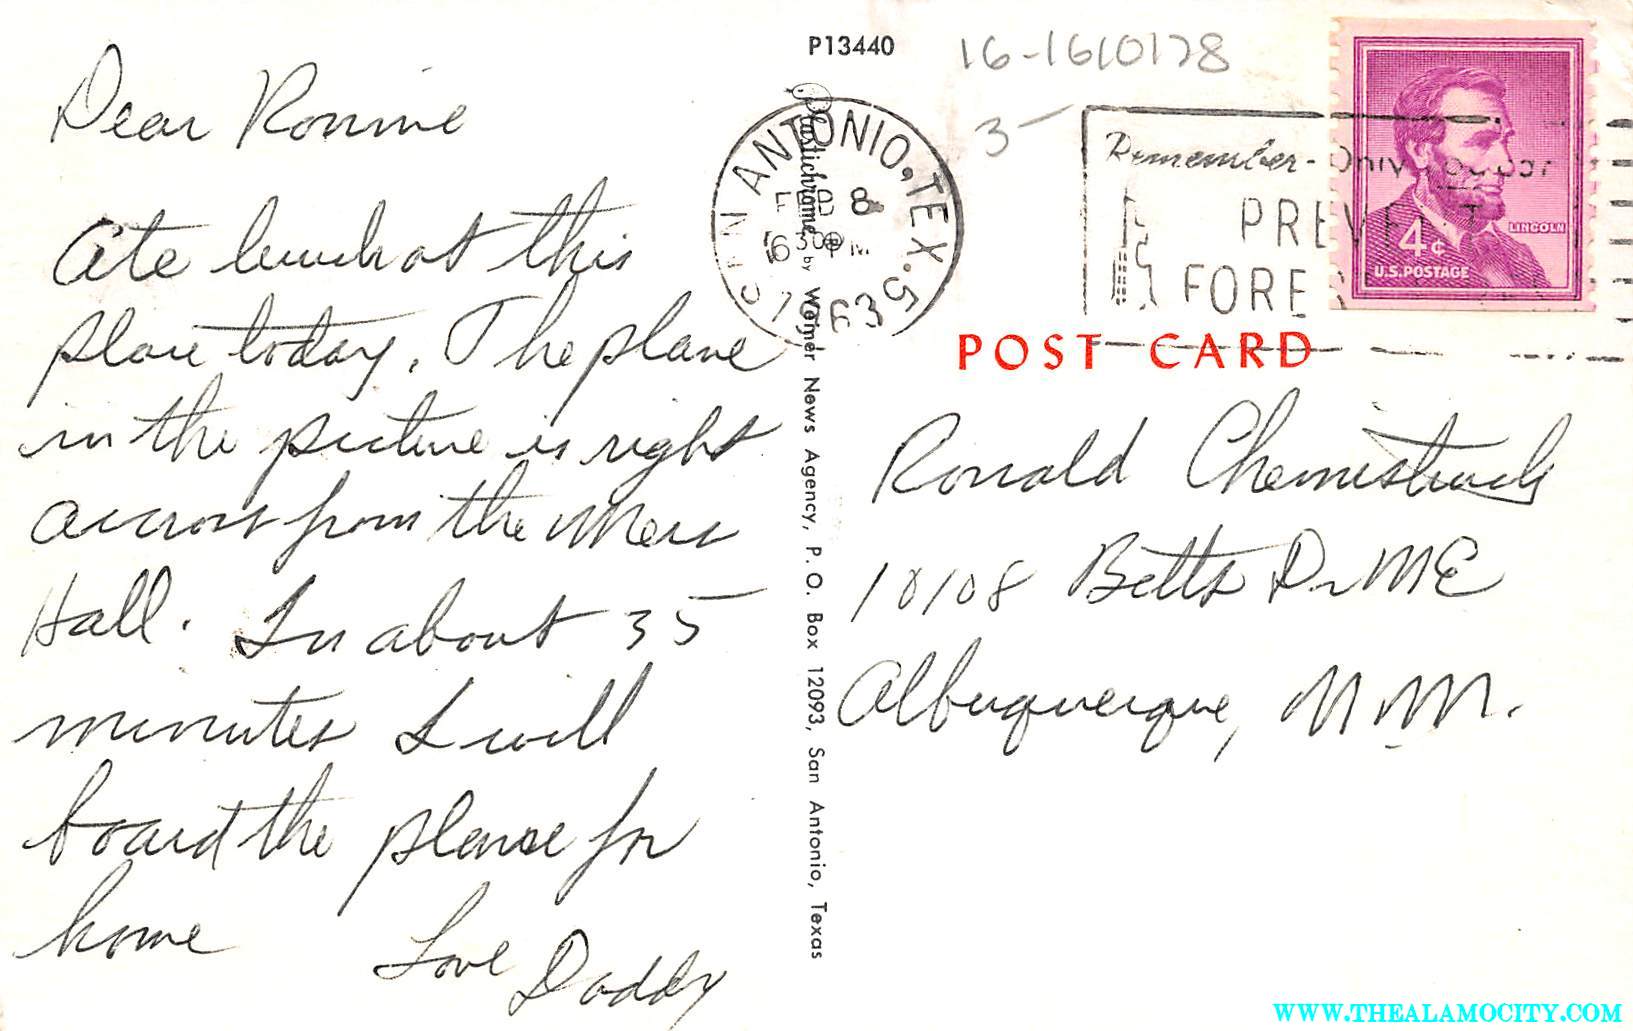 P13440
16-1610178
3-
Dear Ronnie
Ate lunch at this
place today. The plane
in the picture is right
across from the Mess
Hall. In about 35
minutes I will
board the plane for
home
Love Daddy
SAN ANTONIO, TEX. 5
FEB 8
630 PM
1963
Remember - Only you can
PREVENT
FOREST
LINCOLN
4¢
U.S. POSTAGE
POST CARD
Plastichrome by Weiner News Agency, P. O. Box 12093, San Antonio, Texas
Ronald
10108 Betts Dr NE
Albuquerque, N.M.
WWW.THEALAMOCITY.COM